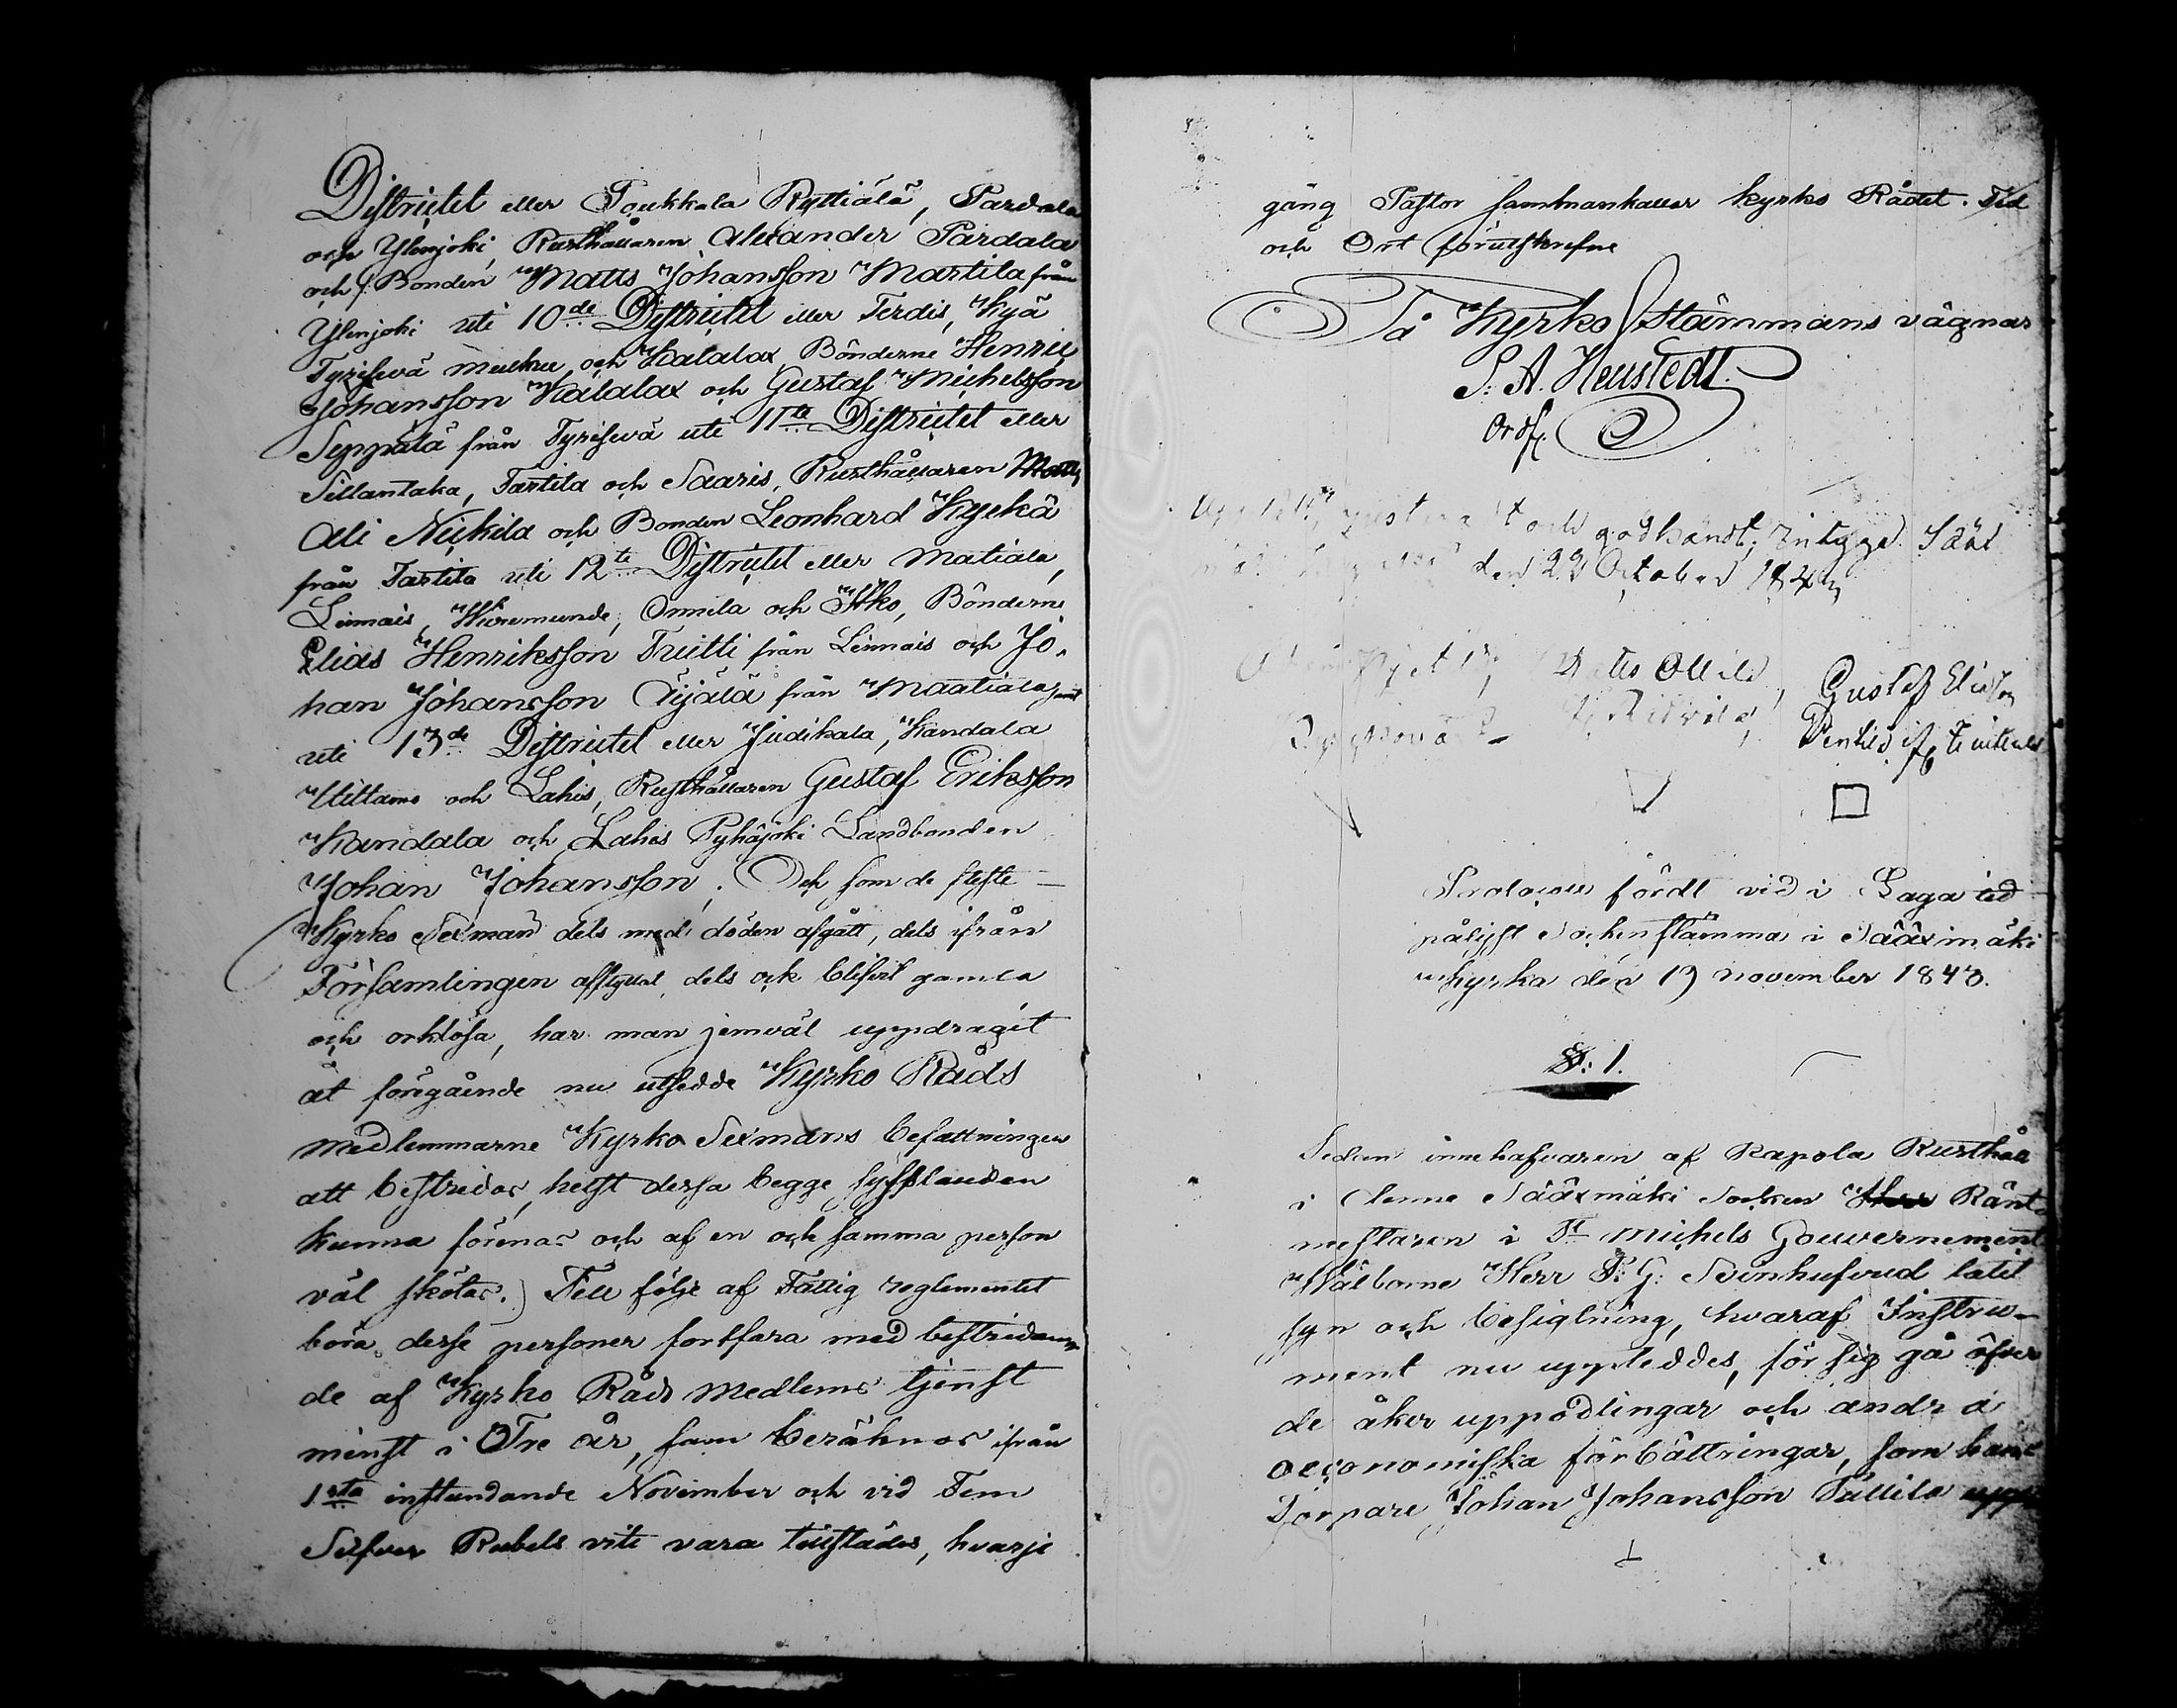 Districtet eller Toukkala Ryttiälä, Pardala
och Ylenjoki, Rusthållaren Alexander Pardala
och Bonden Matts Johansson Martila från
Ylenjoki uti 10de Districtet eller Terdis, Kyä
mulku, och Kalalax, Bönderne Henric
Johansson Kalalax och Gustaf Michelsson
Seppälä från uti 11te Districtet eller
Sillantaka, Tarttila och Saaris, Rusthållaren Matts
Ali Nickilä och Bonden Leonhard Kyekä
från Tarttila uti 12te Districtet eller Matiala,
Linnais, Onnila och Bönderne
Elias Henriksson Truitti från Linnais och Jo-
han Johansson Äijälä från Maatiala samt
uti 13de Districtet eller Judikala, Kandala
Uittamo och Lahis, Rusthållaren Gustaf Eriksson
Kandala och Lahis Pyhäjoki Landbonden
Johan Johansson. Och som de fleste
Kyrko Sexmän dels med döden afgått, dels ifrån
Församlingen afflyttat, dels ock blifvit gamla
och orklösa, har man jemväl uppdragit
åt föregående nu utsedde Kyrko Råds
medlemmarne Kyrko Sexmans befattningen
att bestridas, helst dessa begge sysslanden
kunna förenas och af en och samma person
väl skötas. Till följe af Fattig reglementet
böra desse personer fortfara med bestridan-
de af Kyrko Råds Medlems tjenst
minst i Tre år, som beräknas ifrån
1sta instundande November och vid Fem
Silfver Rubels vite vara tillstädes, hvarje
gång Pastor sammankallar Kyrko Rådet. Tid
och Ort förutskrefne
På Kyrko Stämmans vägnar
S. A. Heustedt.
Ordf.
och godkändt, intyga Sääx
den 22 October 1843
Matts Ollila Gustaf Elias
Protocoll fördt vid i Laga tid
pålyst Sockenstämma i Sääxmäki
Kyrka den 19 November 1843.
§: 1.
Sedan innehafvaren af Rapola Rusthåll
i denne Sääxmäki Socken Herr Ränt-
mestaren i St Michels Gouvernement
Välborne Herr P: G: Svinhufvud låtit
syn och besigtning, hvaraf Instru-
ment nu uppteddes, för sig gå öfver
de åker uppodlingar och andra
oeconomiska förbättringar, som hans
Torpare Johan Johansson Pällilä upp